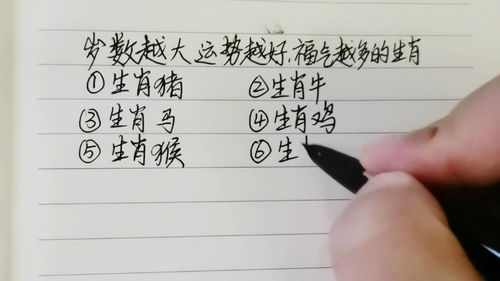 岁数越大运势越好,福气越多的生肖
①生肖猪 ②生肖牛
③生肖马 ④生肖鸡
⑤生肖猴 ⑥生